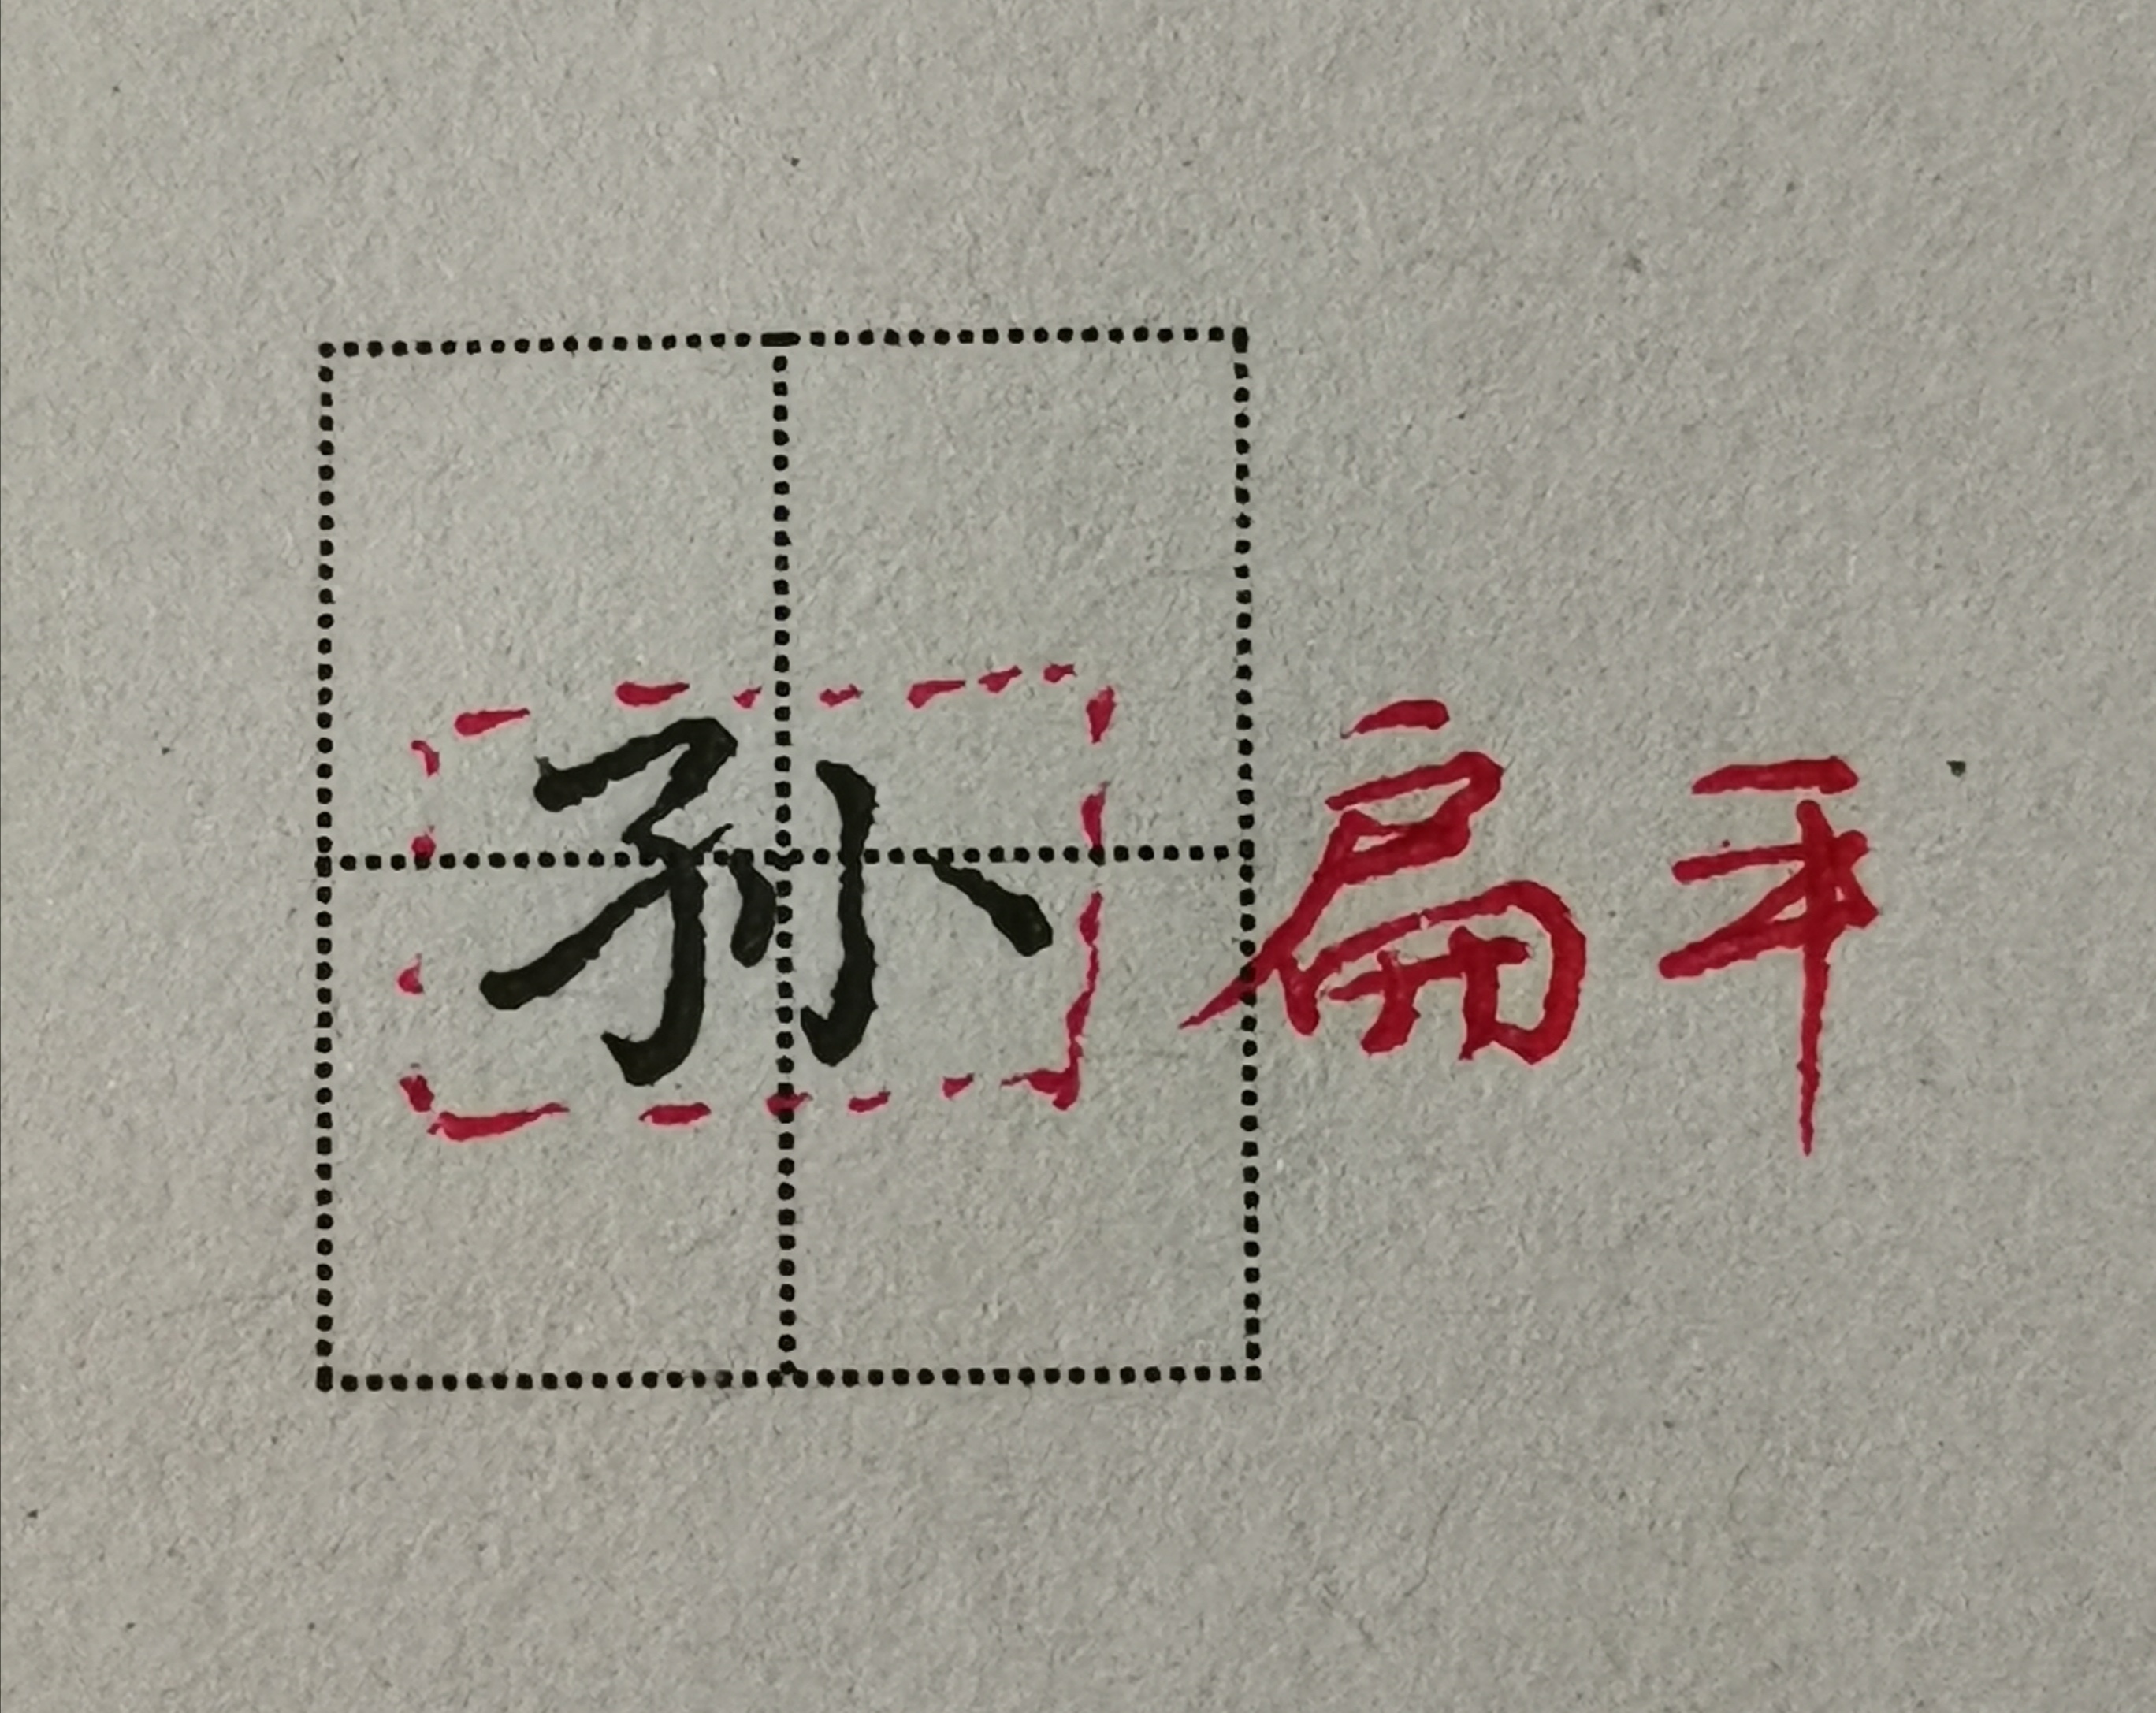 孙 扁平